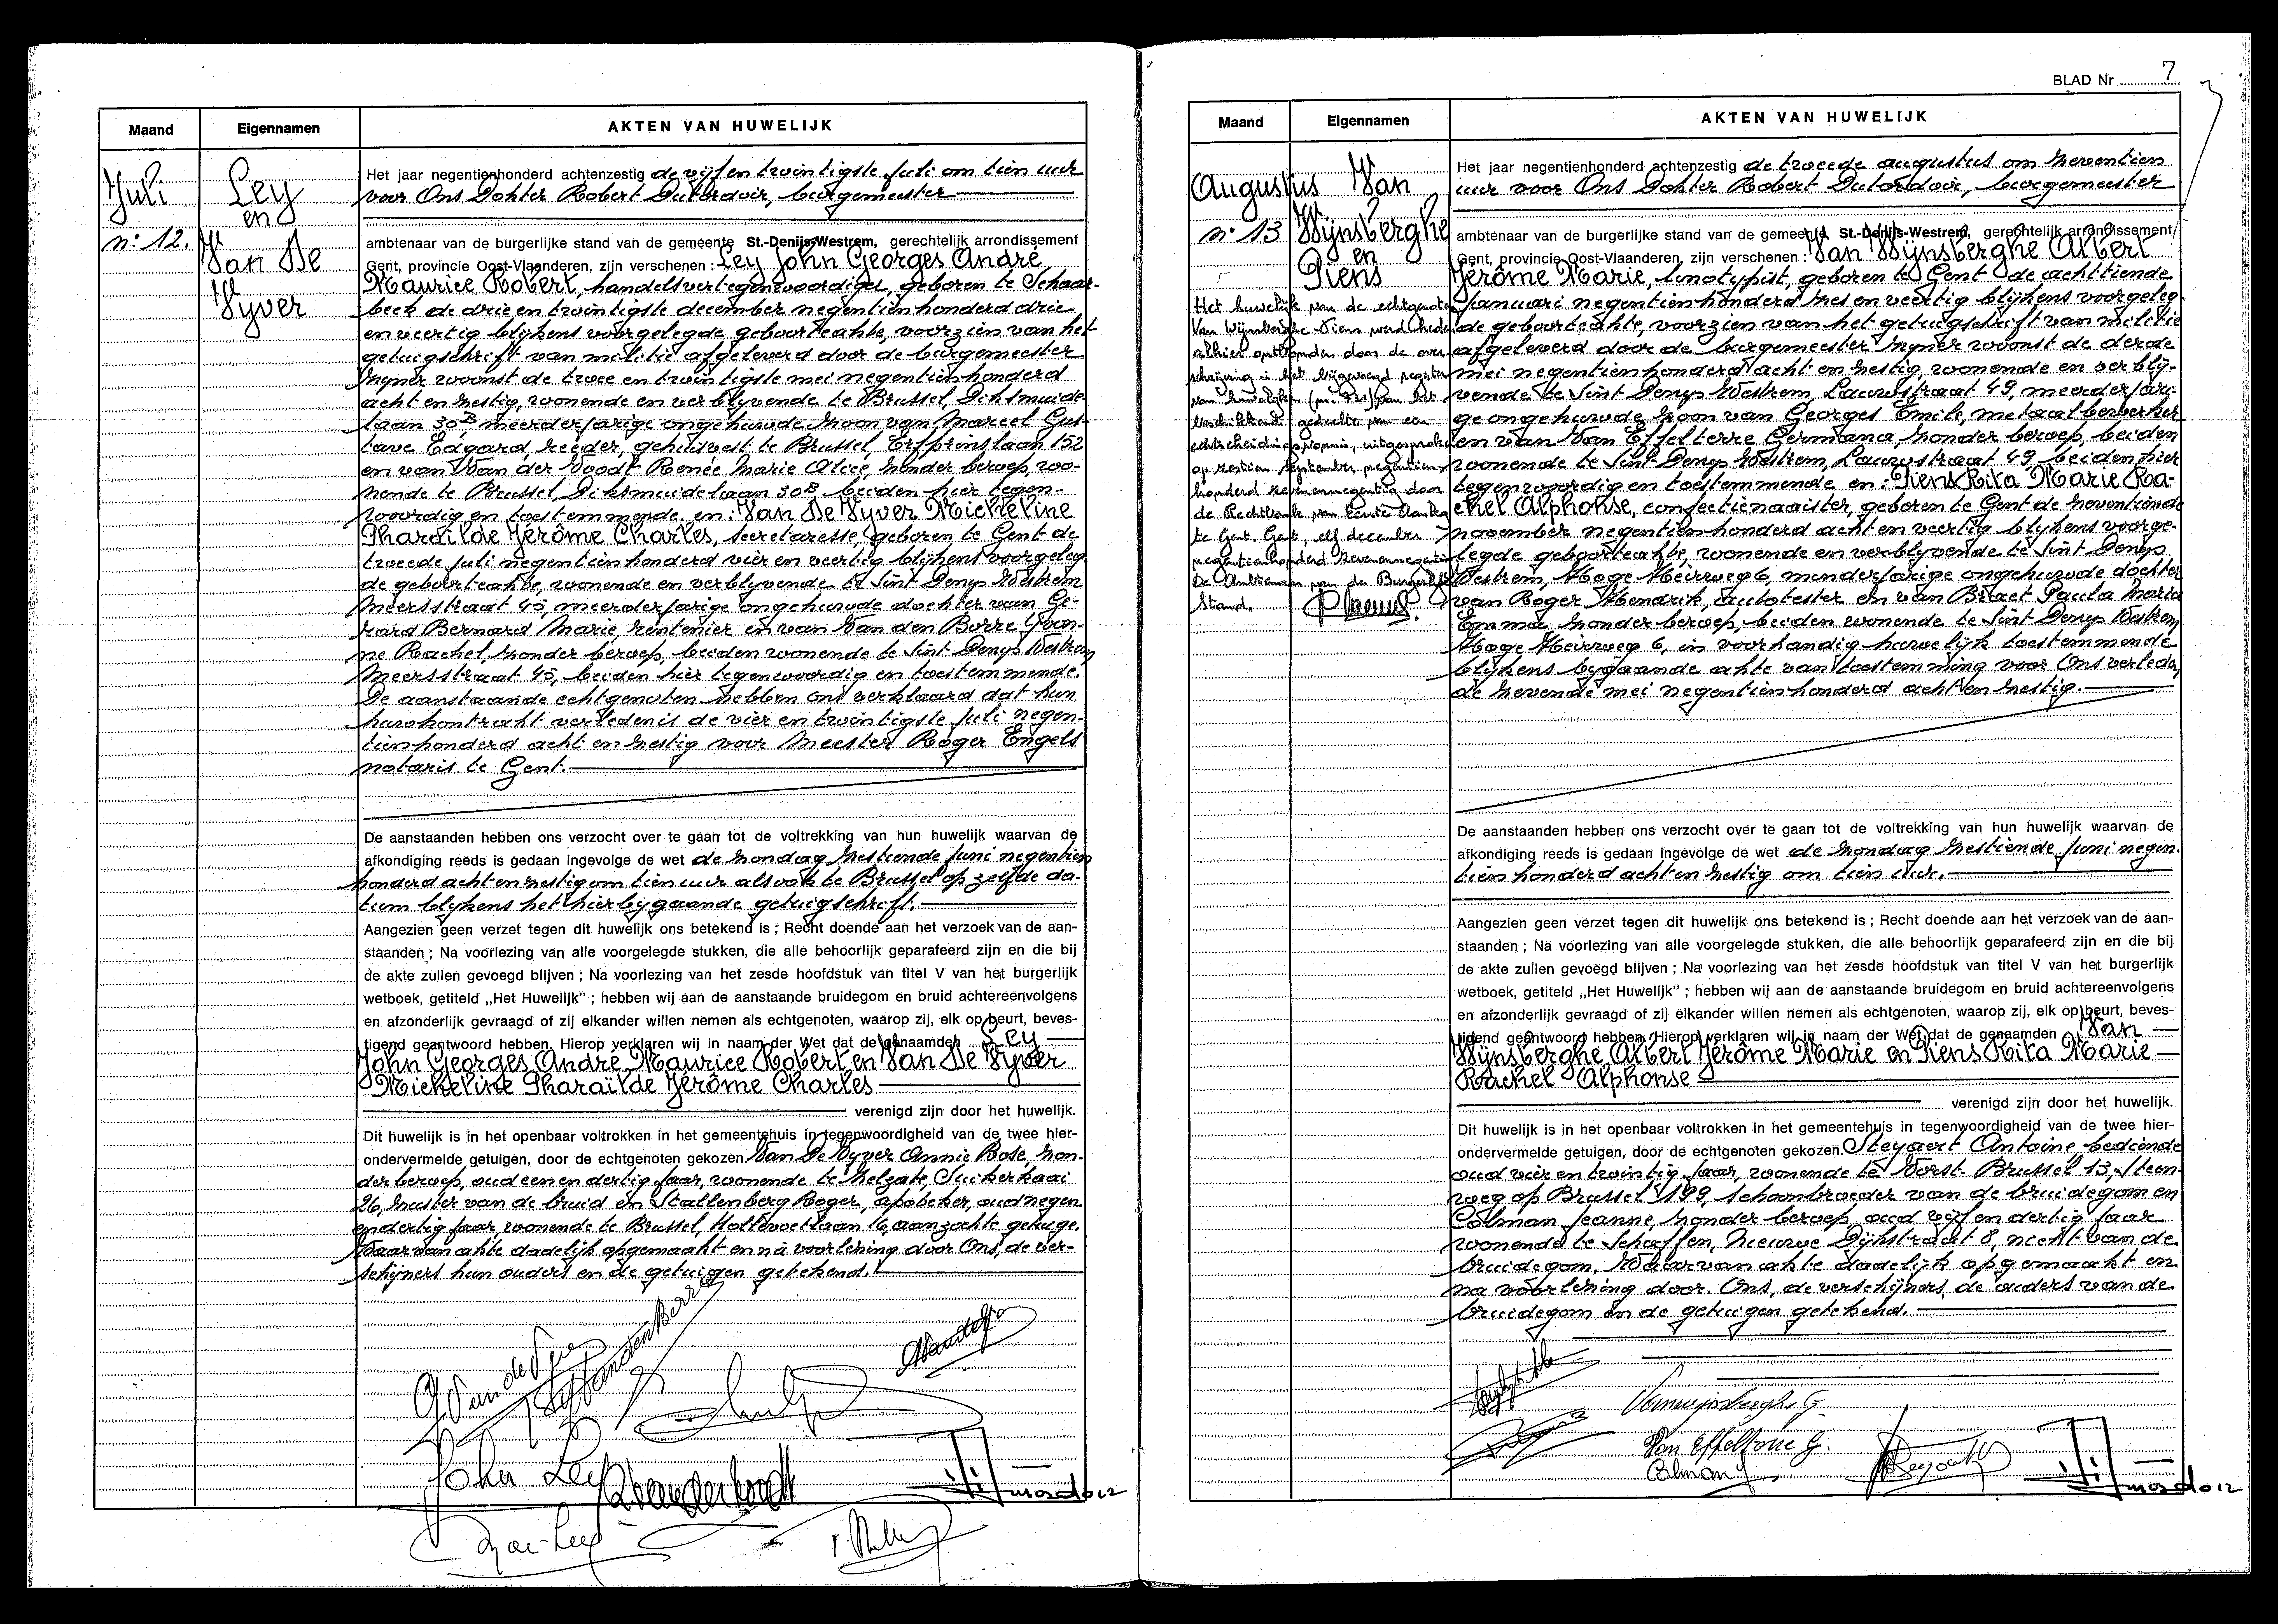 Maand Eigennamen AKTEN VAN HUWELIJK
Juli
n: 12.
Ley
en
Van De
Vyver
Het jaar negentienhonderd achtenzestig de vijf en twintigste juli om tien uur
voor Ons Dokter Robert Dutordoir, burgemeester
ambtenaar van de burgerlijke stand van de gemeente St.-Denijs-Westrem, gerechtelijk arrondissement
Gent, provincie Oost-Vlaanderen, zijn verschenen : Ley John Georges André
Maurice Robert, handelsvertegenwoordiger, geboren te Schaar-
beek de drie en twintigste december negentienhonderd drie
en veertig blijkens voorgelegde geboorteakte, voorzien van het
getuigschrift van militie afgeleverd door de burgemeester
zijner woonst de twee en twintigste mei negentienhonderd
acht en zestig, wonende en verblyvende te Brussel, Diksmuide-
laan 30B meerderjarige ongehuwde zoon van Marcel Gus-
tave Edgard, reeder, gehuisvest te Brussel, Erfprinslaan 152
en van Van der Voodt Renée Marie Alice, zonder beroep, wo-
nende te Brussel, Diksmuidelaan 30B, beiden hier tegen-
woordig en toestemmende en: Van De Vyver Micheline
Pharaïlde Jérôme Charles, secretaresse, geboren te Gent de
tweede juli negentienhonderd vier en veertig blijkens voorgeleg
de geboorteakte, wonende en verblyvende te Sint Denys Westrem
Meersstraat 45, meerderjarige ongehuwde dochter van Ge-
rard Bernard Marie, rentenier en van Van den Borre Yvon-
ne Rachel, zonder beroep, beiden wonende te Sint Denys Westrem
Meersstraat 45, beiden hier tegenwoordig en toestemmende.
De aanstaande echtgenoten hebben ons verklaard dat hun
huwkontrakt verleden is de vier en twintigste juli negen-
tienhonderd acht en zestig voor Meester Roger Engels
notaris te Gent.
De aanstaanden hebben ons verzocht over te gaan tot de voltrekking van hun huwelijk waarvan de
afkondiging reeds is gedaan ingevolge de wet de zondag zestiende juni negentien
honderd acht en zestig om tien uur alsook te Brussel op zelfde da-
tum blykens het hierbijgaande getuigschrift.
Aangezien geen verzet tegen dit huwelijk ons betekend is ; Recht doende aan het verzoek van de aan-
staanden ; Na voorlezing van alle voorgelegde stukken, die alle behoorlijk geparafeerd zijn en die bij
de akte zullen gevoegd blijven ; Na voorlezing van het zesde hoofdstuk van titel V van het burgerlijk
wetboek, getiteld „Het Huwelijk” ; hebben wij aan de aanstaande bruidegom en bruid achtereenvolgens
en afzonderlijk gevraagd of zij elkander willen nemen als echtgenoten, waarop zij, elk op beurt, beves-
tigend geantwoord hebben. Hierop verklaren wij in naam der Wet dat de genaamden Ley
John Georges André Maurice Robert en Van De Vyver
Micheline Pharaïlde Jérôme Charles
verenigd zijn door het huwelijk.
Dit huwelijk is in het openbaar voltrokken in het gemeentehuis in tegenwoordigheid van de twee hier-
ondervermelde getuigen, door de echtgenoten gekozen Van De Vyver Annie Rose, zon-
der beroep, oud een en dertig jaar, wonende te Zelzate, Suikerkaai
26, zuster van de bruid en Stallenberg Roger, apoteker, oud negen
en dertig jaar, wonende te Brussel, Hollevoetlaan 16, aanzochte getuige.
Waarvan akte dadelijk opgemaakt en na voorlezing door Ons, de ver-
schijners hun ouders en de getuigen getekend.
John Ley
BLAD Nr 7
Maand Eigennamen AKTEN VAN HUWELIJK
Augustus
n: 13
Van
Wijnsberghe
en
Piens
Het huwelijk van de echtgenoten
Van Wijnsberghe Piens werd heden
alhier ontbonden door de over-
schrijving in het bijgevoegd register
van huwelijken (nr 731) van het
beschikkend gedeelte van een
echtscheidingsvonnis, uitgesproken
op zestien september negentien-
honderd zevenennegentig door
de Rechtbank van Eerste Aanleg
te Gent. Gent, elf december
negentienhonderd zevenennegentig
De Ambtenaar van de Burgerlijke
Stand.
Het jaar negentienhonderd achtenzestig de tweede augustus om zeventien
uur voor Ons Dokter Robert Dutordoir, burgemeester
ambtenaar van de burgerlijke stand van de gemeente St.-Denijs-Westrem, gerechtelijk arrondissement
Gent, provincie Oost-Vlaanderen, zijn verschenen : Van Wijnsberghe Albert
Jérôme Marie, linotypist, geboren te Gent de achttiende
januari negentienhonderd zes en veertig blijkens voorgeleg-
de geboorteakte, voorzien van het getuigschrift van militie
afgeleverd door de burgemeester zijner woonst de derde
mei negentienhonderd acht en zestig, wonende en verblij-
vende te Sint Denys Westrem, Lauwstraat 49, meerderjari-
ge ongehuwde zoon van Georges Emile, metaalbewerker
en van Van Effelterre Germana, zonder beroep, beiden
wonende te Sint Denys Westrem, Lauwstraat 49 beiden hier
tegenwoordig en toestemmende en: Piens Rita Marie Ra-
chel Alphonse, confectienaaister, geboren te Gent de zeventiende
november negentienhonderd acht en veertig blijkens voorge-
legde geboorteakte, wonende en verblyvende te Sint Denys
Westrem, Hoge Heirweg 6, minderjarige ongehuwde dochter
van Roger Hendrik, autotester en van Braet Paula Maria
Emma zonder beroep, beiden wonende te Sint Denys Westrem
Hoge Heirweg 6, in voorhandig huwelijk toestemmende
blijkens bygaande akte van toestemming voor Ons verleden
de zevende mei negentienhonderd acht en zestig.
De aanstaanden hebben ons verzocht over te gaan tot de voltrekking van hun huwelijk waarvan de
afkondiging reeds is gedaan ingevolge de wet de zondag zestiende juni negen-
tienhonderd acht en zestig om tien uur.
Aangezien geen verzet tegen dit huwelijk ons betekend is ; Recht doende aan het verzoek van de aan-
staanden ; Na voorlezing van alle voorgelegde stukken, die alle behoorlijk geparafeerd zijn en die bij
de akte zullen gevoegd blijven ; Na voorlezing van het zesde hoofdstuk van titel V van het burgerlijk
wetboek, getiteld „Het Huwelijk” ; hebben wij aan de aanstaande bruidegom en bruid achtereenvolgens
en afzonderlijk gevraagd of zij elkander willen nemen als echtgenoten, waarop zij, elk op beurt, beves-
tigend geantwoord hebben. Hierop verklaren wij in naam der Wet dat de genaamden Van
Wijnsberghe Albert Jérôme Marie en Piens Rita Marie
Rachel Alphonse
verenigd zijn door het huwelijk.
Dit huwelijk is in het openbaar voltrokken in het gemeentehuis in tegenwoordigheid van de twee hier-
ondervermelde getuigen, door de echtgenoten gekozen. Steyaert Antoine, bediende
oud vier en twintig jaar, wonende te Vorst- Brussel 13, Steen-
weg op Brussel 199, schoonbroeder van de bruidegom en
Colman Jeanne, zonder beroep, oud vijf en dertig jaar
wonende te Schaffen, Nieuwe Dijkstraat 8, nicht van de
bruidegom. Waarvan akte dadelijk opgemaakt en
na voorlezing door Ons, de verschijners, de ouders van de
bruidegom en de getuigen getekend.
Vanwijnsberghe G.
Van Effelterre G.
Colman J